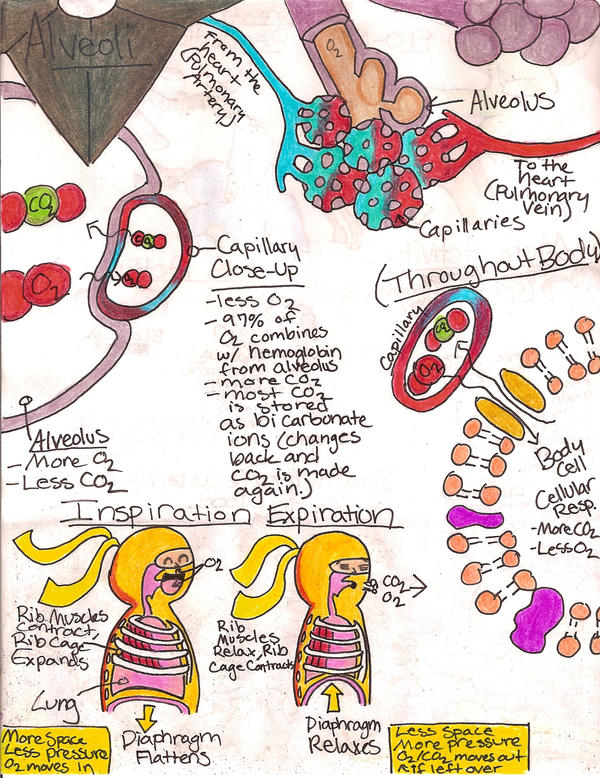 Alveoli
From the
heart
(Pulmonary
Artery)
O2
Alveolus
To the
heart
(Pulmonary
Vein)
Capillaries
CO2
O2
CO2
O2
Capillary
Close-Up
-less O2
-97% of
O2 combines
w/ hemoglobin
from alveolus
-more CO2
-most CO2
is stored
as bicarbonate
ions (changes
back and
CO2 is made
again.)
Alveolus
-More O2
-Less CO2
(Throughout Body)
Capillary
CO2
O2
Body
Cell
Cellular
Resp.
-More CO2
-Less O2
Inspiration Expiration
O2
Rib Muscles
Contract,
Rib Cage
Expands
Lung
Diaphragm
Flattens
More Space
Less pressure
O2 moves in
CO2
O2
Rib
Muscles
Relax, Rib
Cage Contracts
Diaphragm
Relaxes
Less Space
More pressure
O2/CO2 moves out
if left over